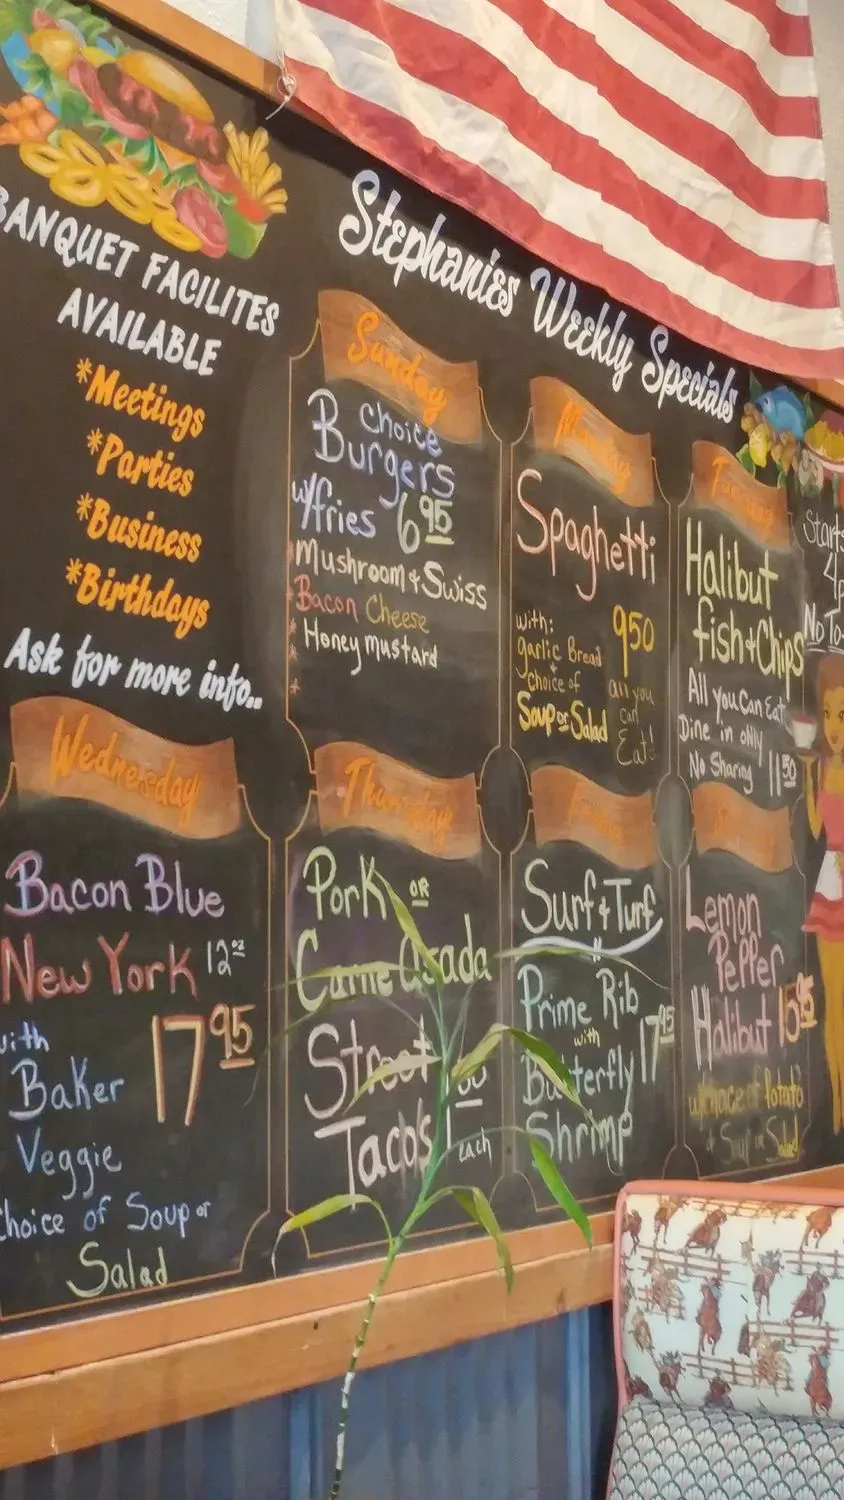 BANQUET FACILITES
AVAILABLE
*Meetings
*Parties
*Business
*Birthdays
Ask for more info..
Stephanies Weekly Specials
Sunday
Choice
Burgers
w/fries 6 95
*Mushroom + Swiss
*Bacon Cheese
*Honey mustard
*
Monday
Spaghetti
with: 9 50
garlic Bread
+
choice of
Soup or Salad
all you
can
Eat!
Tuesday
Halibut
fish + Chips
All you Can Eat
Dine in only
No Sharing 11 50
Starts
4p
No To
Wednesday
Bacon Blue
New York 12 oz
with 17 95
Baker
Veggie
Choice of Soup or
Salad
Thursday
Pork or
Carne Asada
Street
Taco's 1
each
Friday
Surf + Turf
Prime Rib
with 17 95
Butterfly
Shrimp
Lemon
Pepper
Halibut 15 95
w/choice of Potato
+ Soup or Salad